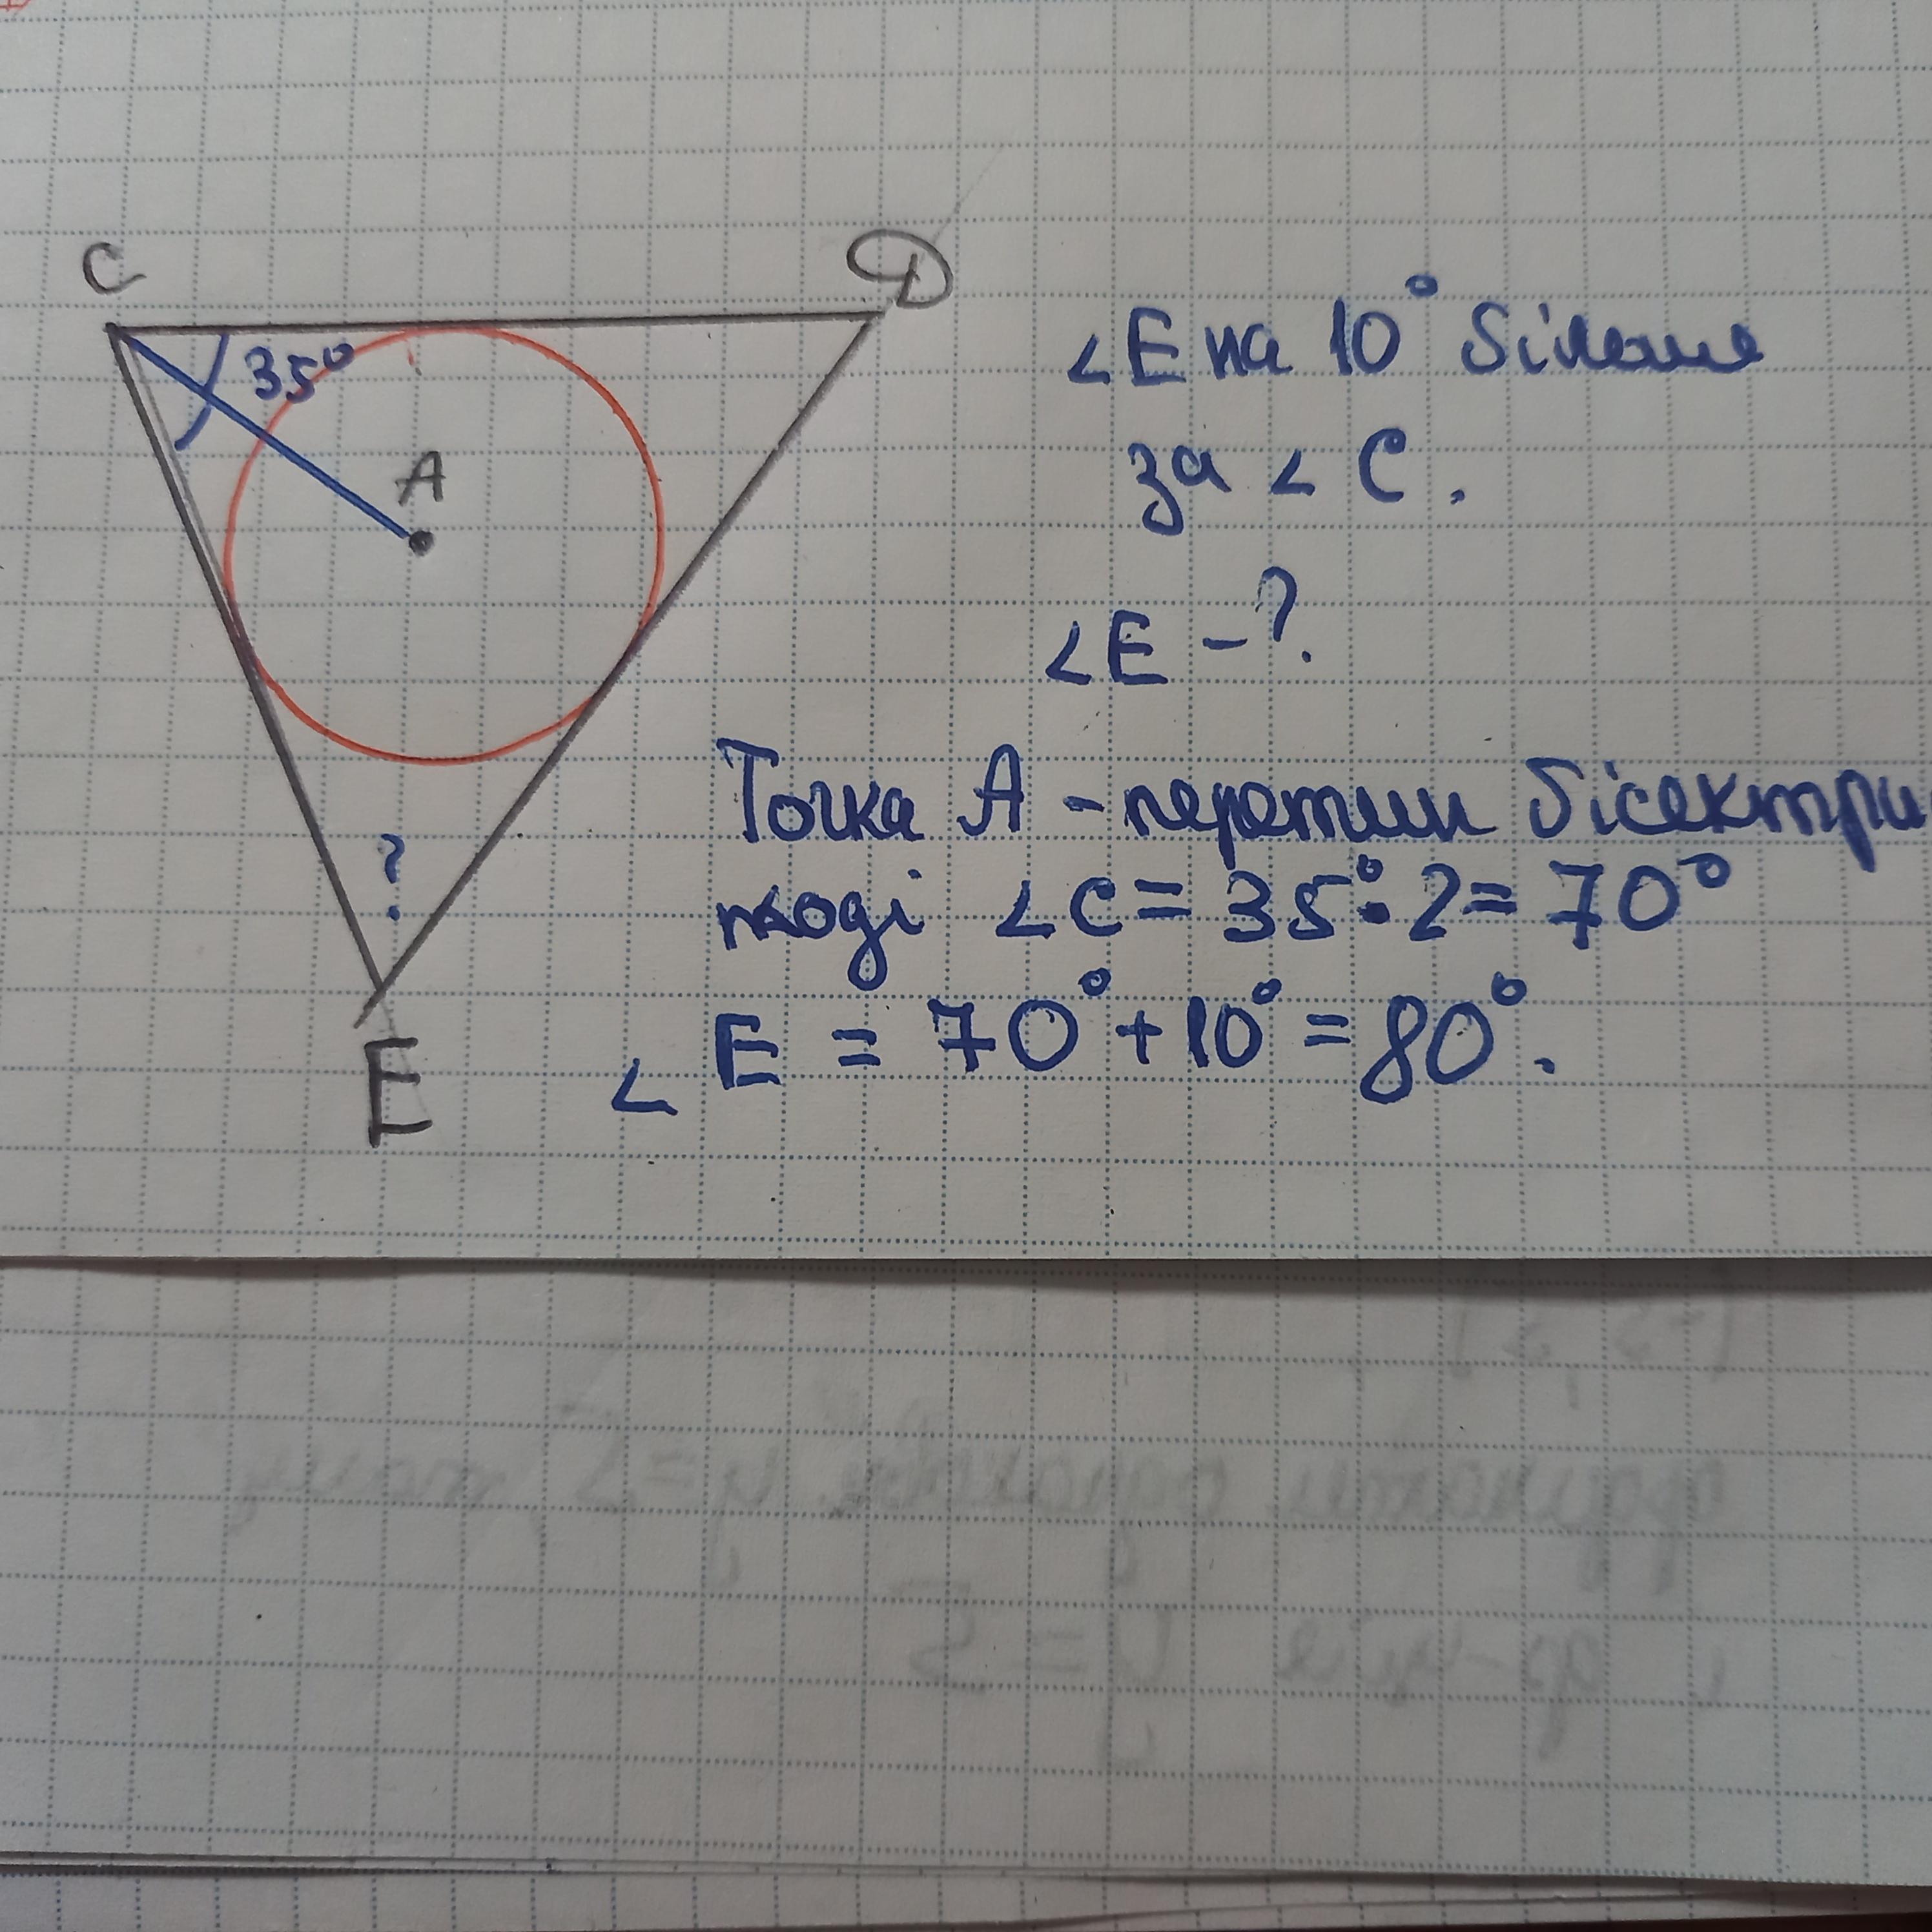 C
D
35°
A
?
E
∠E на 10° більше
за ∠C.
∠E -?
Точка A - перетин бісектри
тоді ∠C = 35°·2 = 70°
∠E = 70° + 10° = 80°.
y = 5